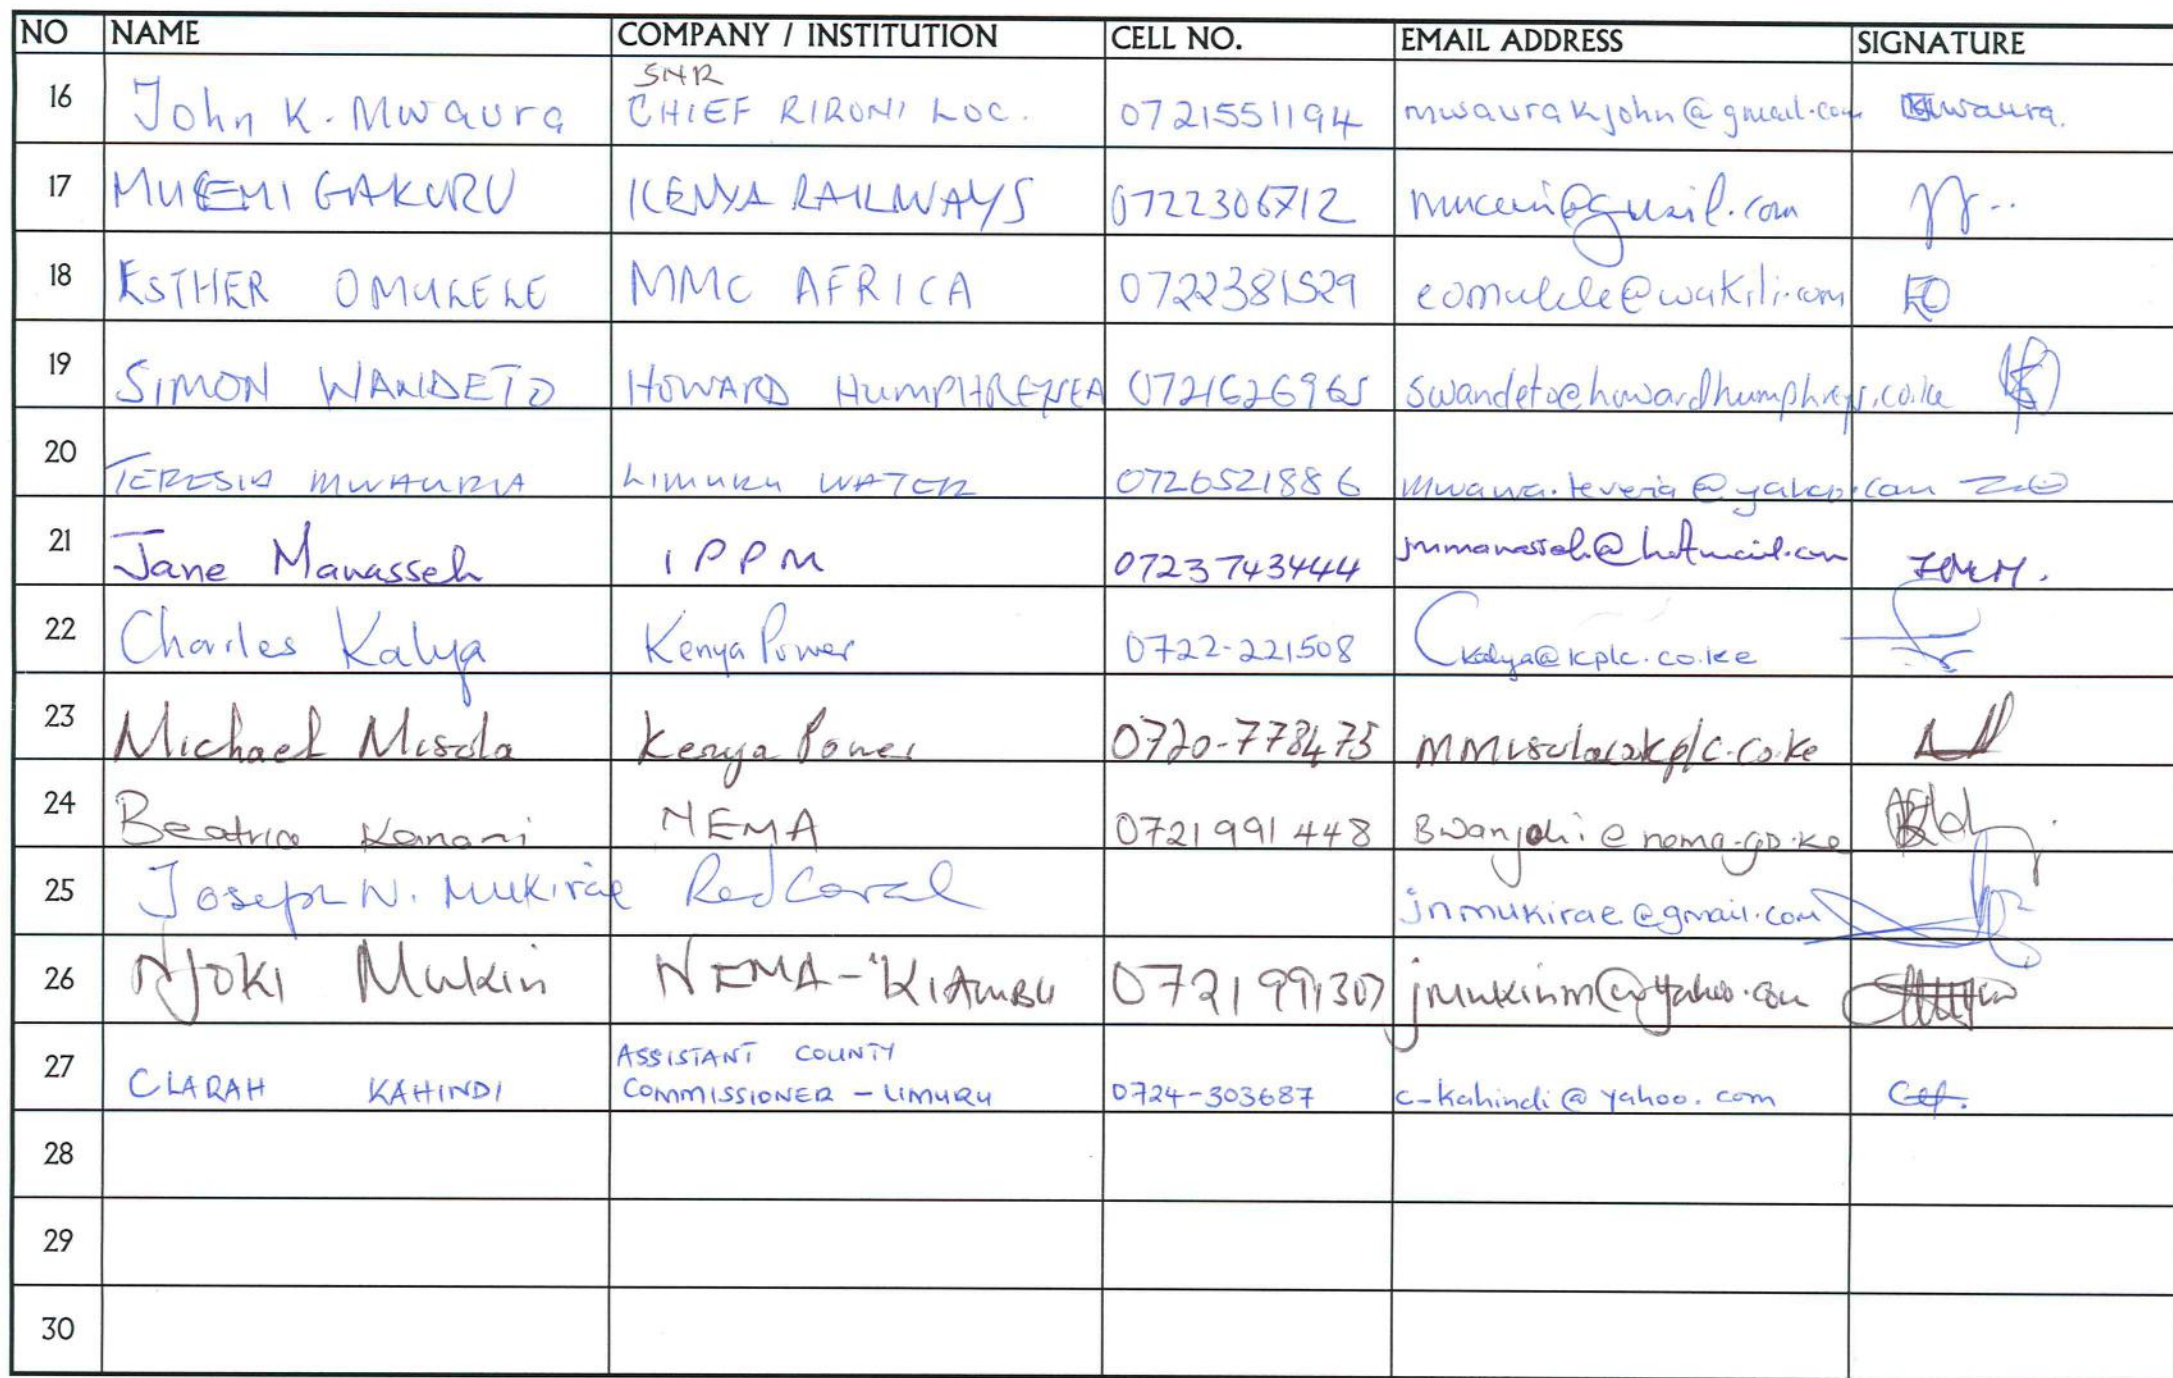 NO NAME COMPANY / INSTITUTION CELL NO. EMAIL ADDRESS SIGNATURE
SNR
16 John K. Mwaura CHIEF RIRONI LOC. 0721551194 mwaurakjohn@gmail.com
17 GAKURU KENYA RAILWAYS 0722306712
18 ESTHER OMULELE MMC AFRICA 0722381529 eomulele@wakili.com EO
19 SIMON WANDETO HOWARD HUMPHREYS EA 0721626965 swandeto@howardhumphreys.co.ke
20 TERESIA MWAURA LIMURU WATER 0726521886
21 Jane Manasseh IPPM 0723743444 jmmanasseh@hotmail.com
22 Charles Kalya Kenya Power 0722-221508 Ckalya@kplc.co.ke
23 Michael Kenya Power 0720-778475
24 Beatrice NEMA 0721991448
25 Joseph N. Mukirae Red Coral jnmukirae@gmail.com
26 NJOKI NEMA - KIAMBU 0721991307
ASSISTANT COUNTY
27 CLARAH KAHINDI COMMISSIONER - LIMURU 0724-303687 c-kahindi@yahoo.com
28
29
30